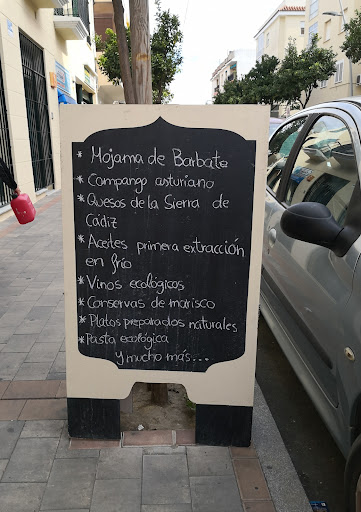 * Mojama de Barbate
* Compango asturiano
* Quesos de la Sierra de
Cádiz
* Aceites primera extracción
en frío
* Vinos ecológicos
* Conservas de marisco
* Platos preparados naturales
* Pasta ecológica
Y mucho más...